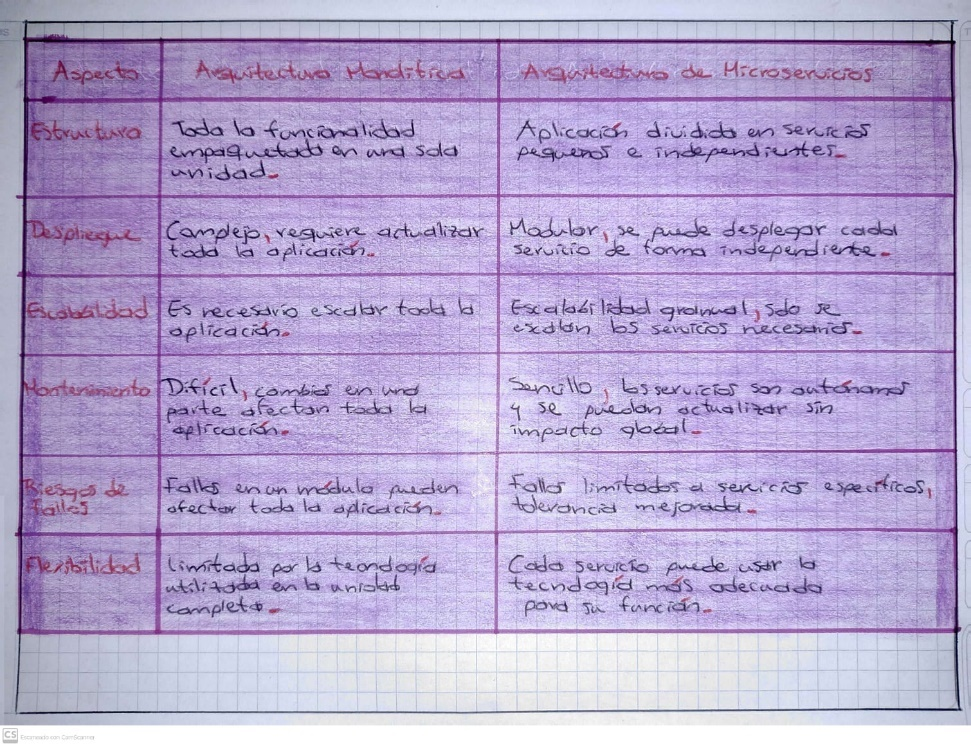 Aspecto
Arquitectura Monolítica
Arquitectura de Microservicios
Estructura
Toda la funcionalidad
empaquetada en una sola
unidad.
Aplicación dividida en servicios
pequeños e independientes.
Despliegue
Complejo, requiere actualizar
toda la aplicación.
Modular, se puede desplegar cada
servicio de forma independiente.
Escabalidad
Es necesario escalar toda la
aplicación.
Escalabilidad granual, solo se
escalan los servicios necesarios.
Mantenimiento
Difícil, cambios en una
parte afectan toda la
aplicación.
Sencillo, los servicios son autónomos
y se puedan actualizar sin
impacto global.
Riesgos de
fallos
Fallos en un módulo pueden
afectar toda la aplicación.
Fallos limitados a servicios específicos,
tolerancia mejorada.
Flexibilidad
Limitada por la tecnología
utilizada en la unidad
completa.
Cada servicio puede usar la
tecnología más adecuada
para su función.
CS Escaneado con CamScanner